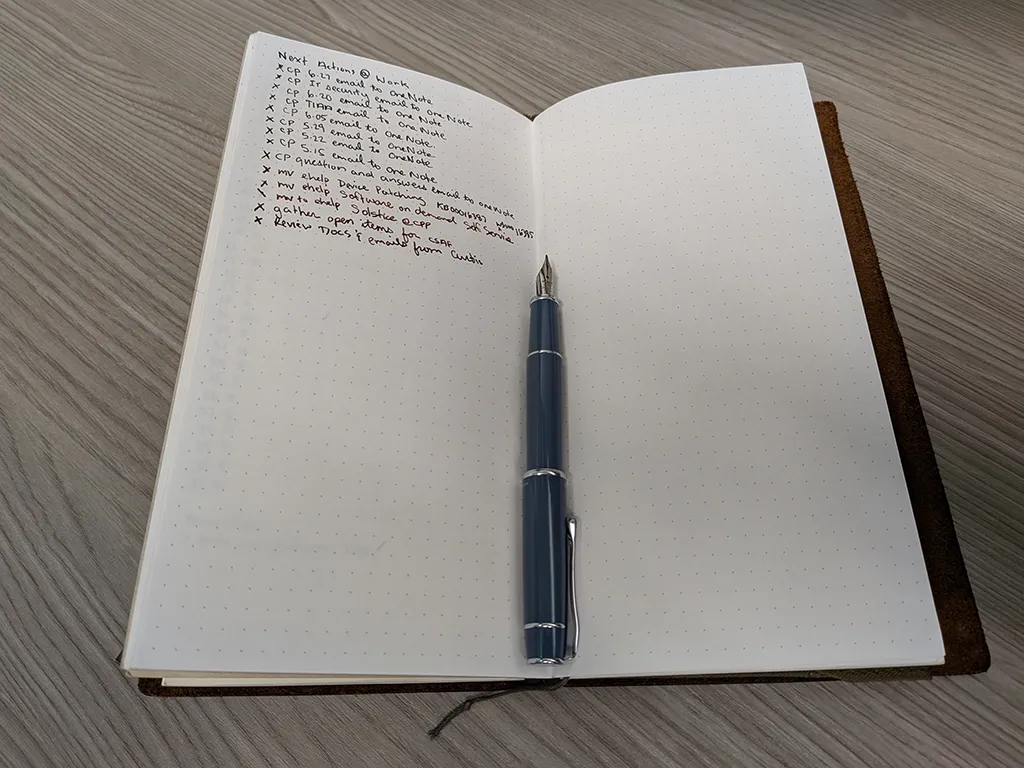 Next Actions @ Work
x cp 6.27 email to OneNote
x cp IT security email to One Note
x cp 6.20 email to One Note
x cp TIAA email to One Note
x cp 6.05 email to One Note.
x cp 5.29 email to OneNote
x cp 5.22 email to OneNote
x cp 5.15 email to One Note
x cp question and answers email to oneNote
x mv ehelp Device Patching
x mv ehelp Software on demand Self Service
x mv to ehelp Solstice @CPP
x gather open items for CSAF
x Review Docs & emails from Curtis